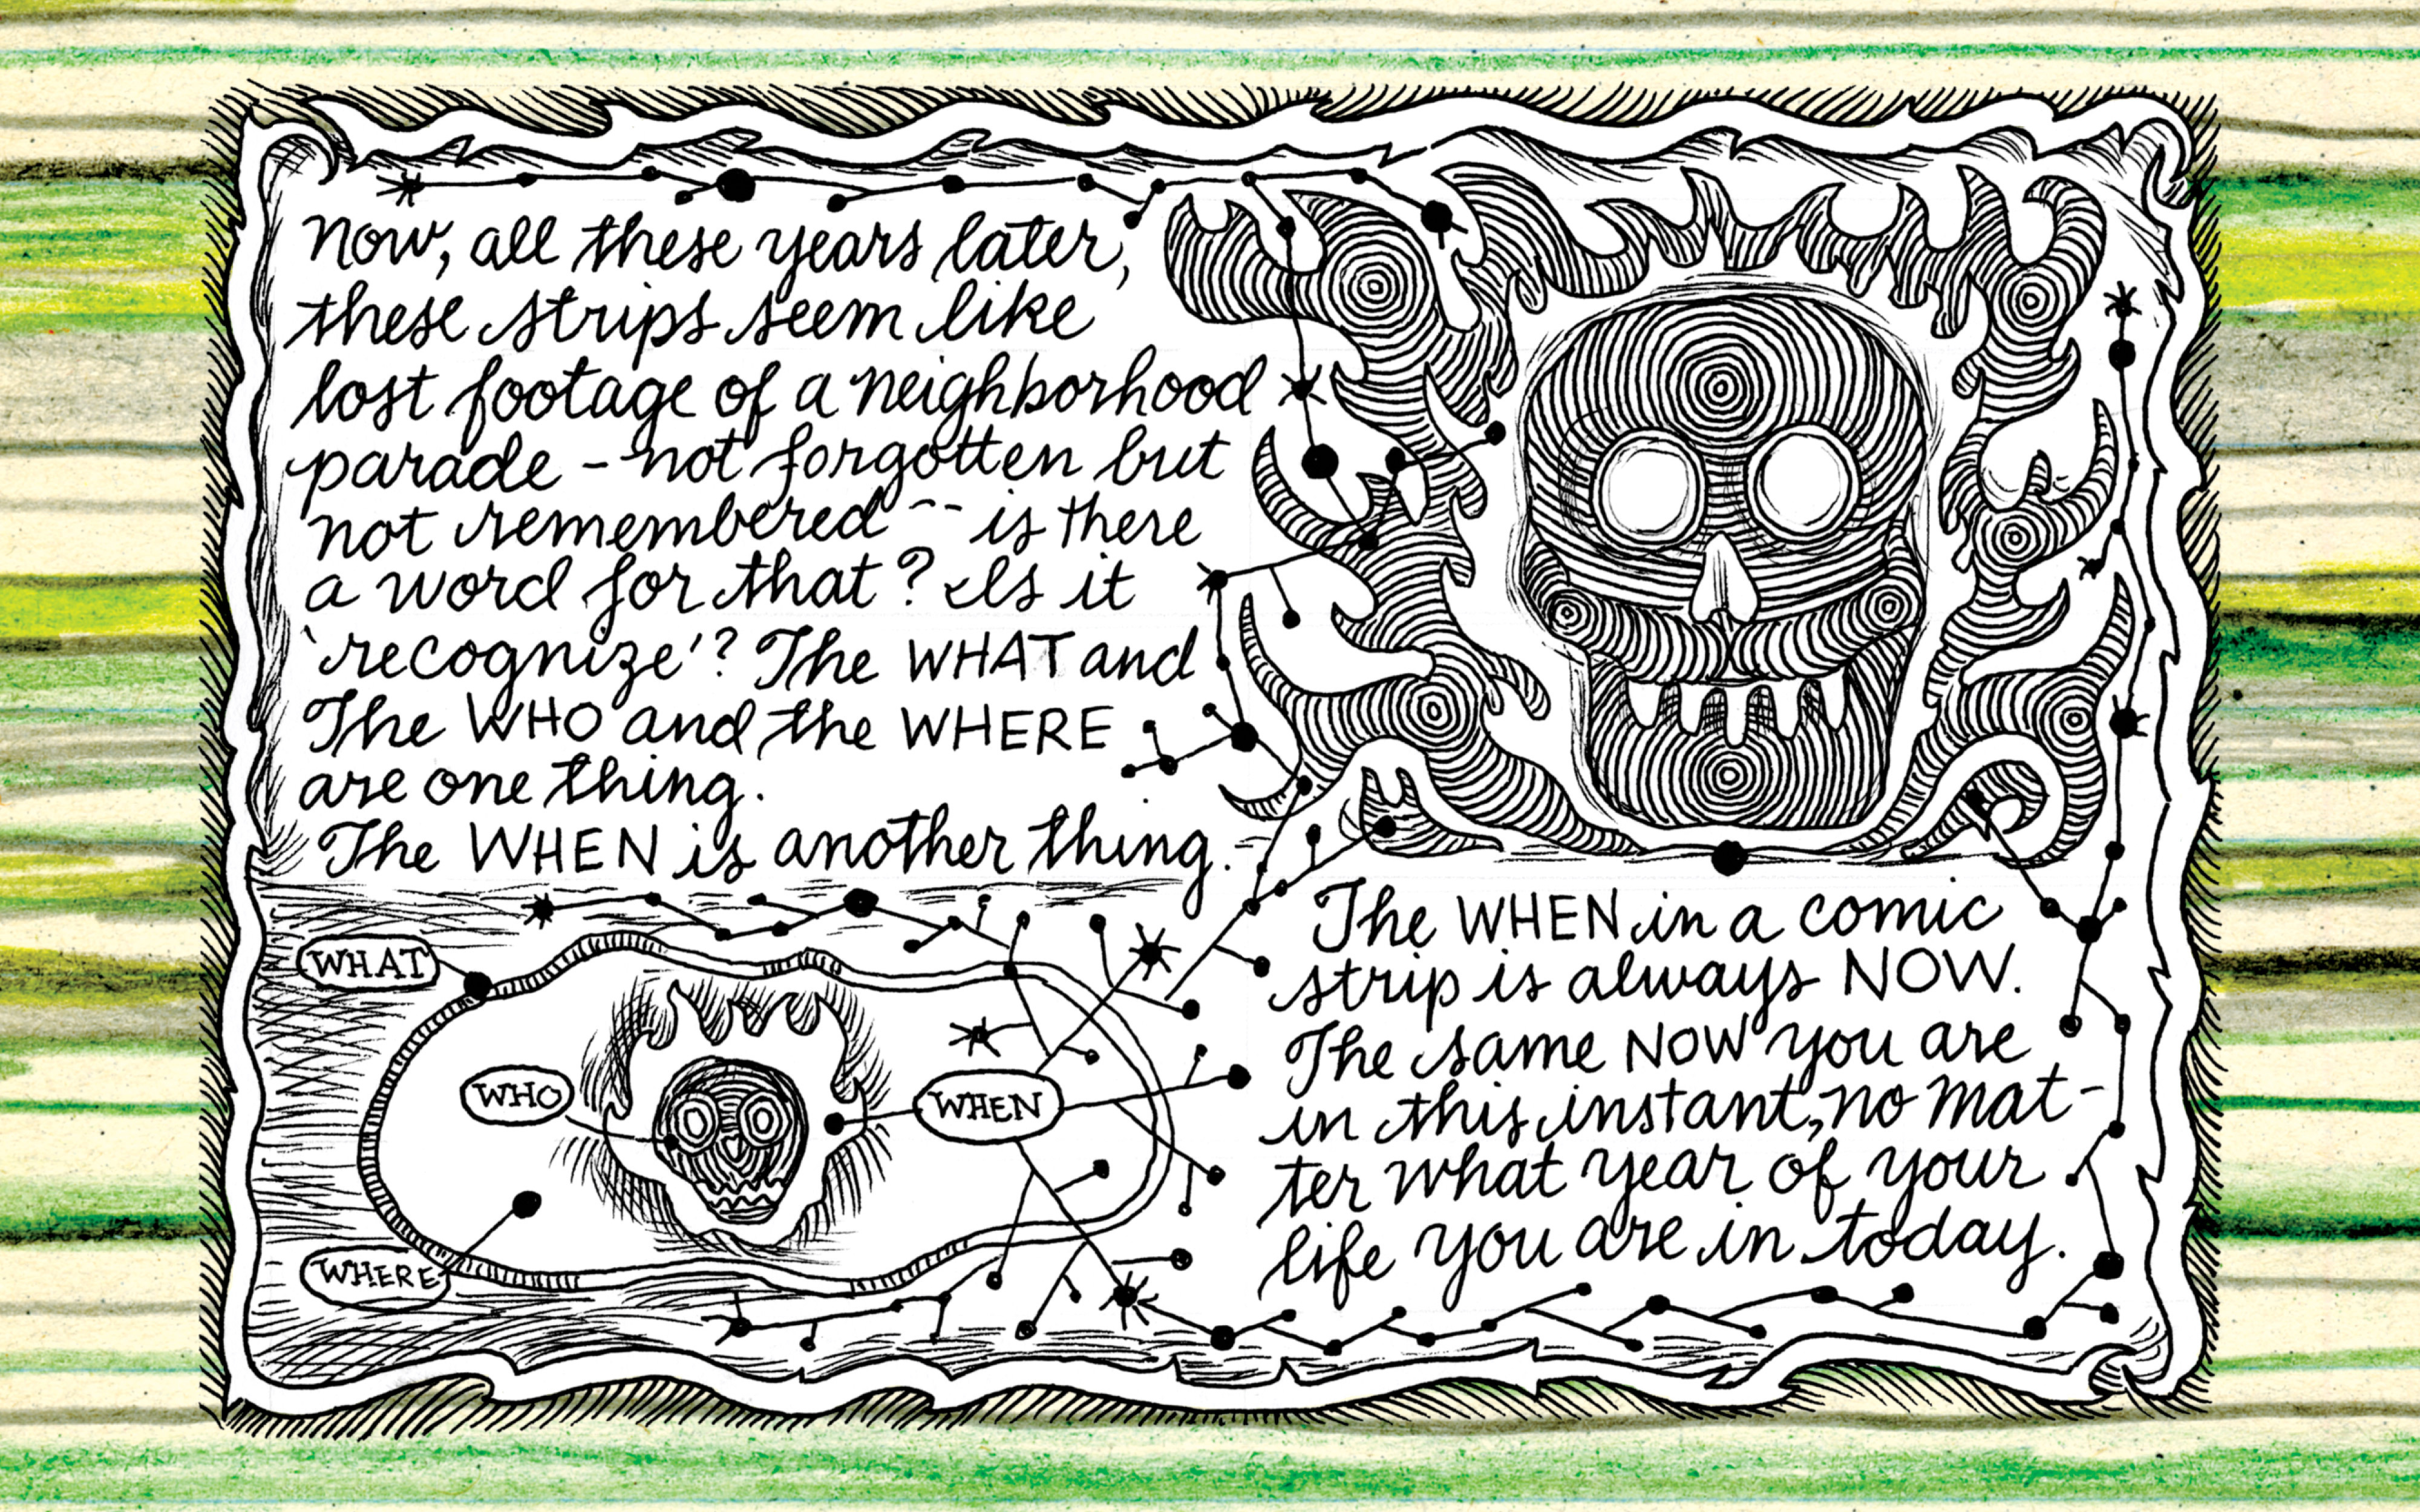 Now, all these years later,
these strips seem like
lost footage of a neighborhood
parade - not forgotten but
not remembered -- is there
a word for that? Is it
'recognize'? The WHAT and
The WHO and the WHERE
are one thing.
The WHEN is another thing.
WHAT
WHO
WHEN
WHERE
The WHEN in a comic
strip is always NOW.
The same NOW you are
in this instant, no mat-
ter what year of your
life you are in today.